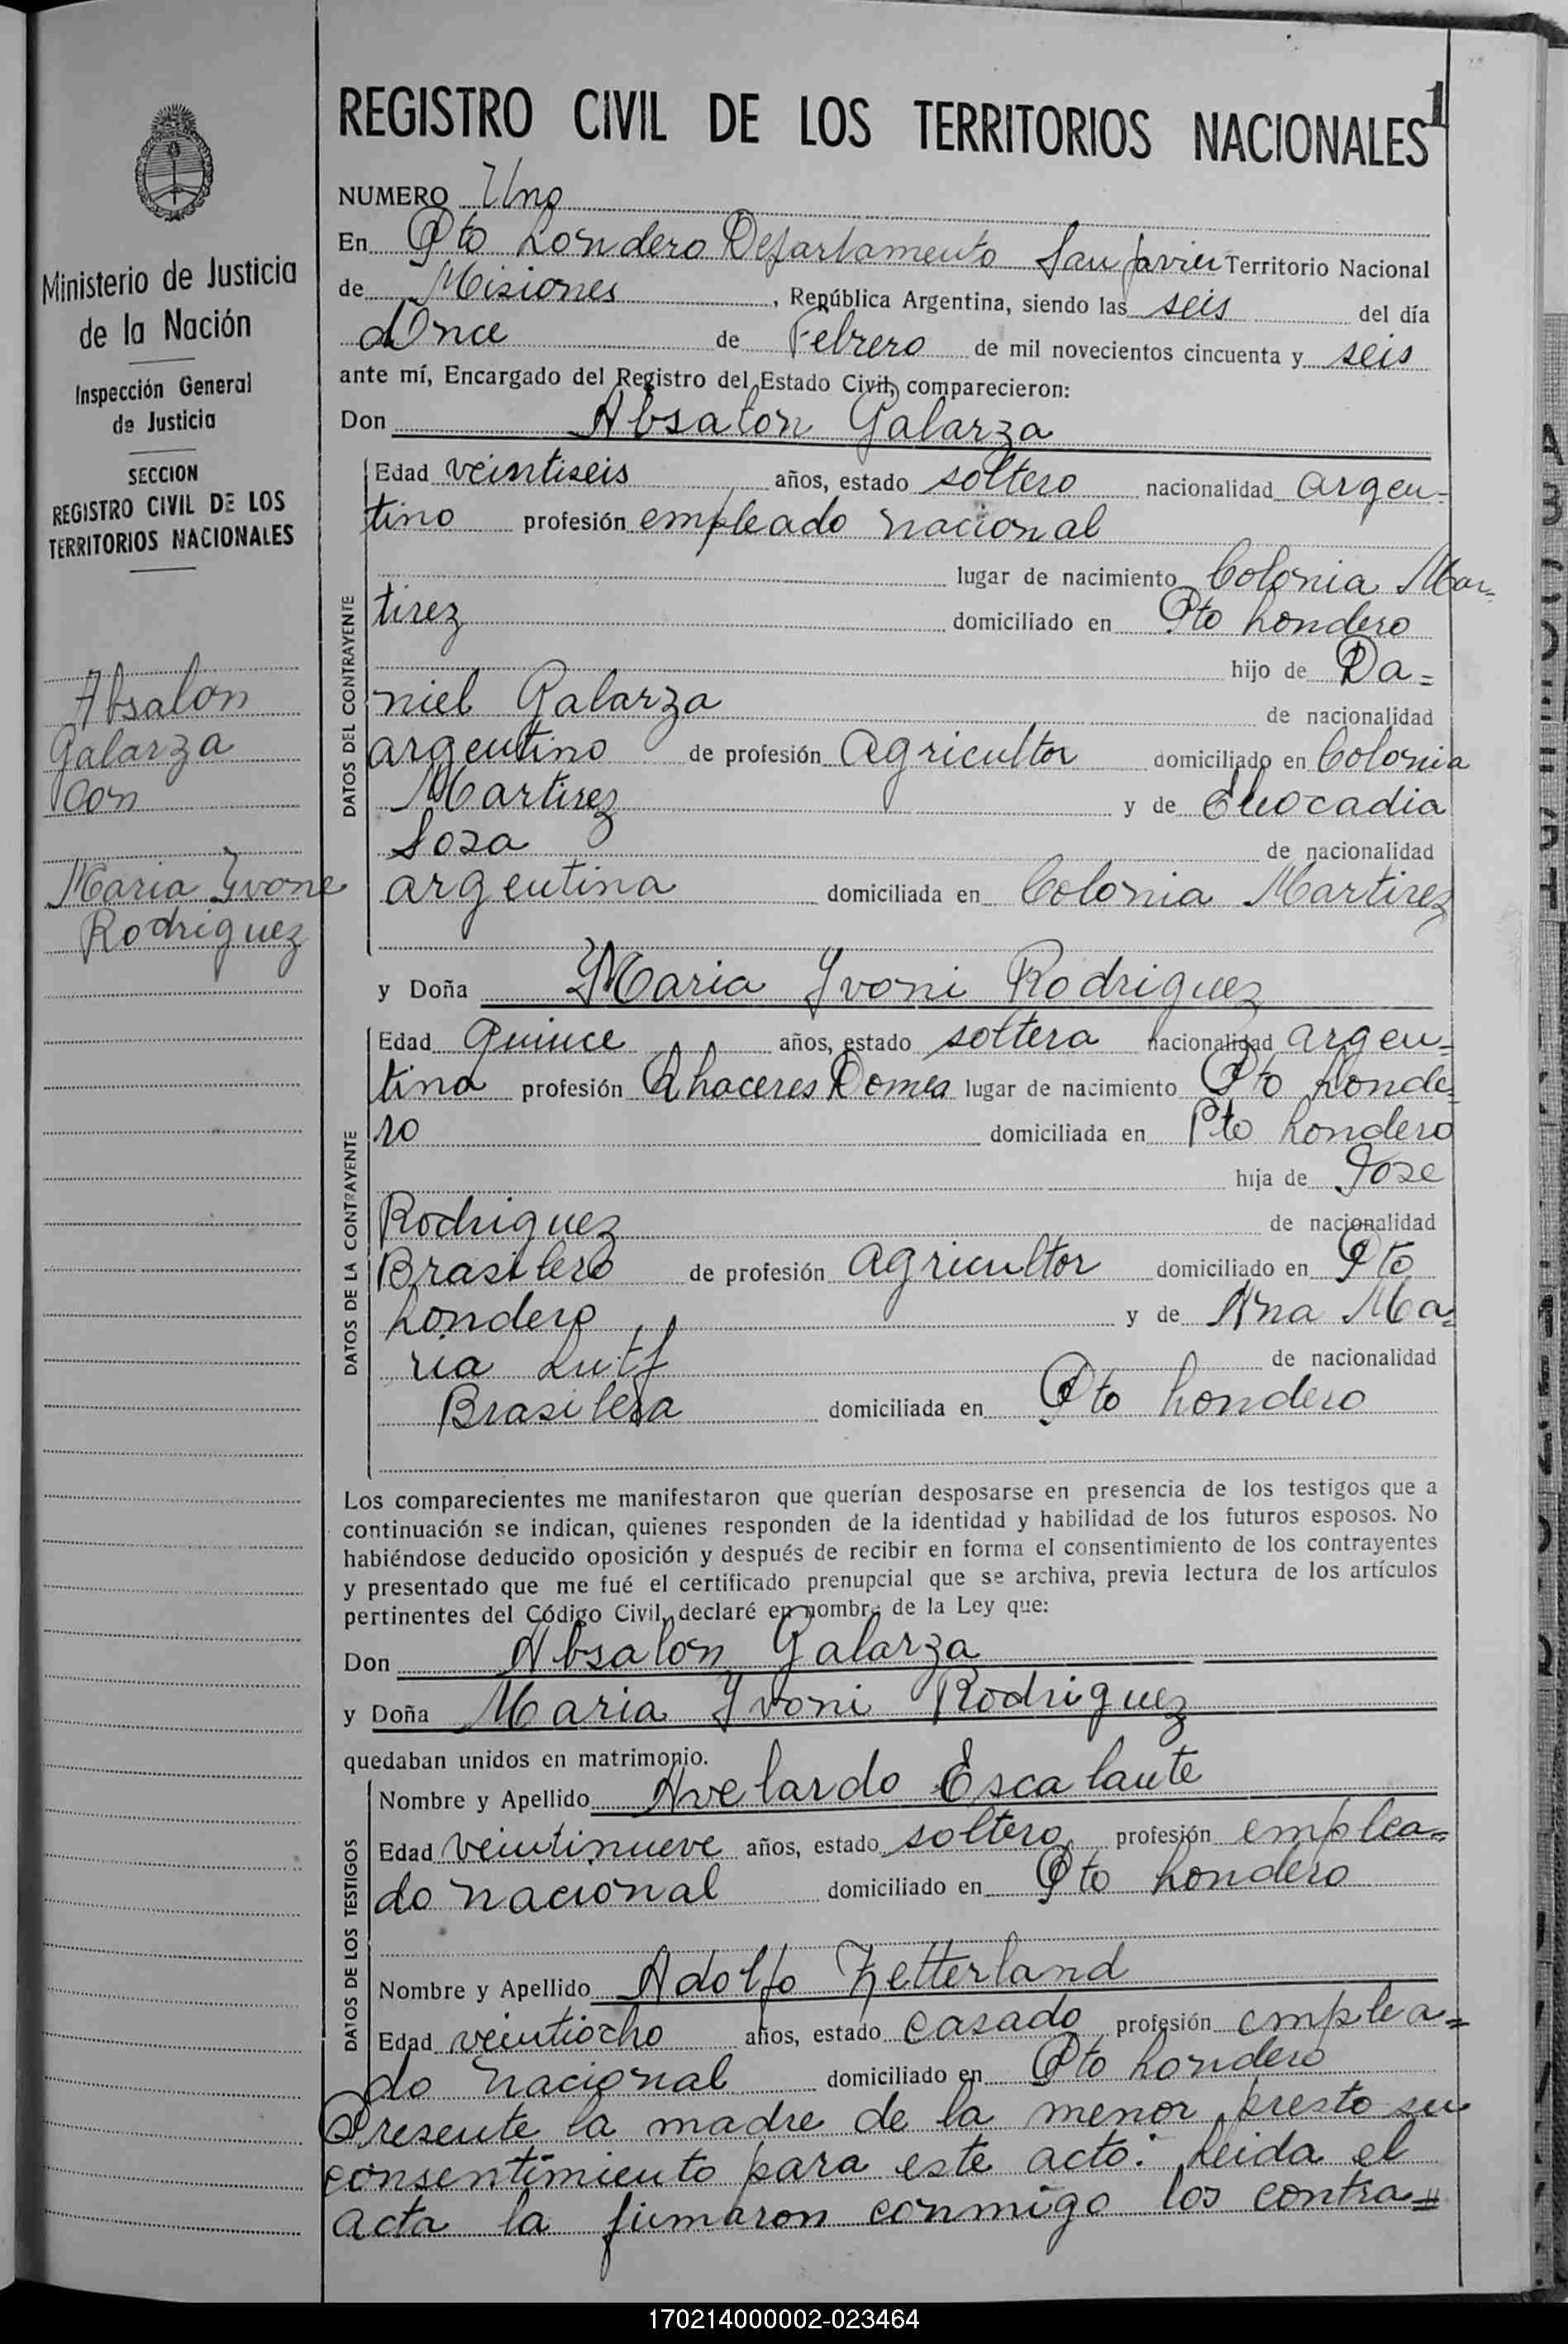 REGISTRO CIVIL DE LOS TERRITORIOS NACIONALES 1
Ministerio de Justicia
de la Nación
Inspección General
de Justicia
SECCION
REGISTRO CIVIL DE LOS
TERRITORIOS NACIONALES
Absalon
Galarza
Con
Maria Yvone
Rodriguez
NUMERO Uno
En Pto Londero Departamento San Javier Territorio Nacional
de Misiones, República Argentina, siendo las seis del día
Once de Febrero de mil novecientos cincuenta y seis
ante mí, Encargado del Registro del Estado Civil, comparecieron:
Don Absalon Galarza
DATOS DEL CONTRAYENTE
Edad veintiseis años, estado soltero nacionalidad argen-
tino profesión empleado nacional
lugar de nacimiento Colonia Mar-
tirez domiciliado en Pto Londero
hijo de Da=
niel Galarza de nacionalidad
argentino de profesión Agricultor domiciliado en Colonia
Martirez y de Eleocadia
Sosa de nacionalidad
argentina domiciliada en Colonia Martirez
y Doña Maria Yvoni Rodriguez
DATOS DE LA CONTRAYENTE
Edad Quince años, estado soltera nacionalidad argen=
tina profesión Qhaceres Domes lugar de nacimiento Pto Londe=
ro domiciliada en Pto Londero
hija de Jose
Rodriguez de nacionalidad
Brasilero de profesión agricultor domiciliado en Pto
Londero y de Ana Ma=
ria de nacionalidad
Brasilera domiciliada en Pto Londero
Los comparecientes me manifestaron que querían desposarse en presencia de los testigos que a
continuación se indican, quienes responden de la identidad y habilidad de los futuros esposos. No
habiéndose deducido oposición y después de recibir en forma el consentimiento de los contrayentes
y presentado que me fué el certificado prenupcial que se archiva, previa lectura de los artículos
pertinentes del Código Civil, declaré en nombre de la Ley que:
Don Absalon Galarza
y Doña Maria Yvoni Rodriguez
quedaban unidos en matrimonio.
DATOS DE LOS TESTIGOS
Nombre y Apellido Avelardo Escalante
Edad veintinueve años, estado soltero profesión emplea=
do nacional domiciliado en Pto Londero
Nombre y Apellido Adolfo Zetterland
Edad veintiocho años, estado casado profesión emplea=
do nacional domiciliado en Pto Londero
Presente la madre de la menor presto su
consentimiento para este acto: Leida el
acta la firmaron conmigo los contra=
170214000002-023464